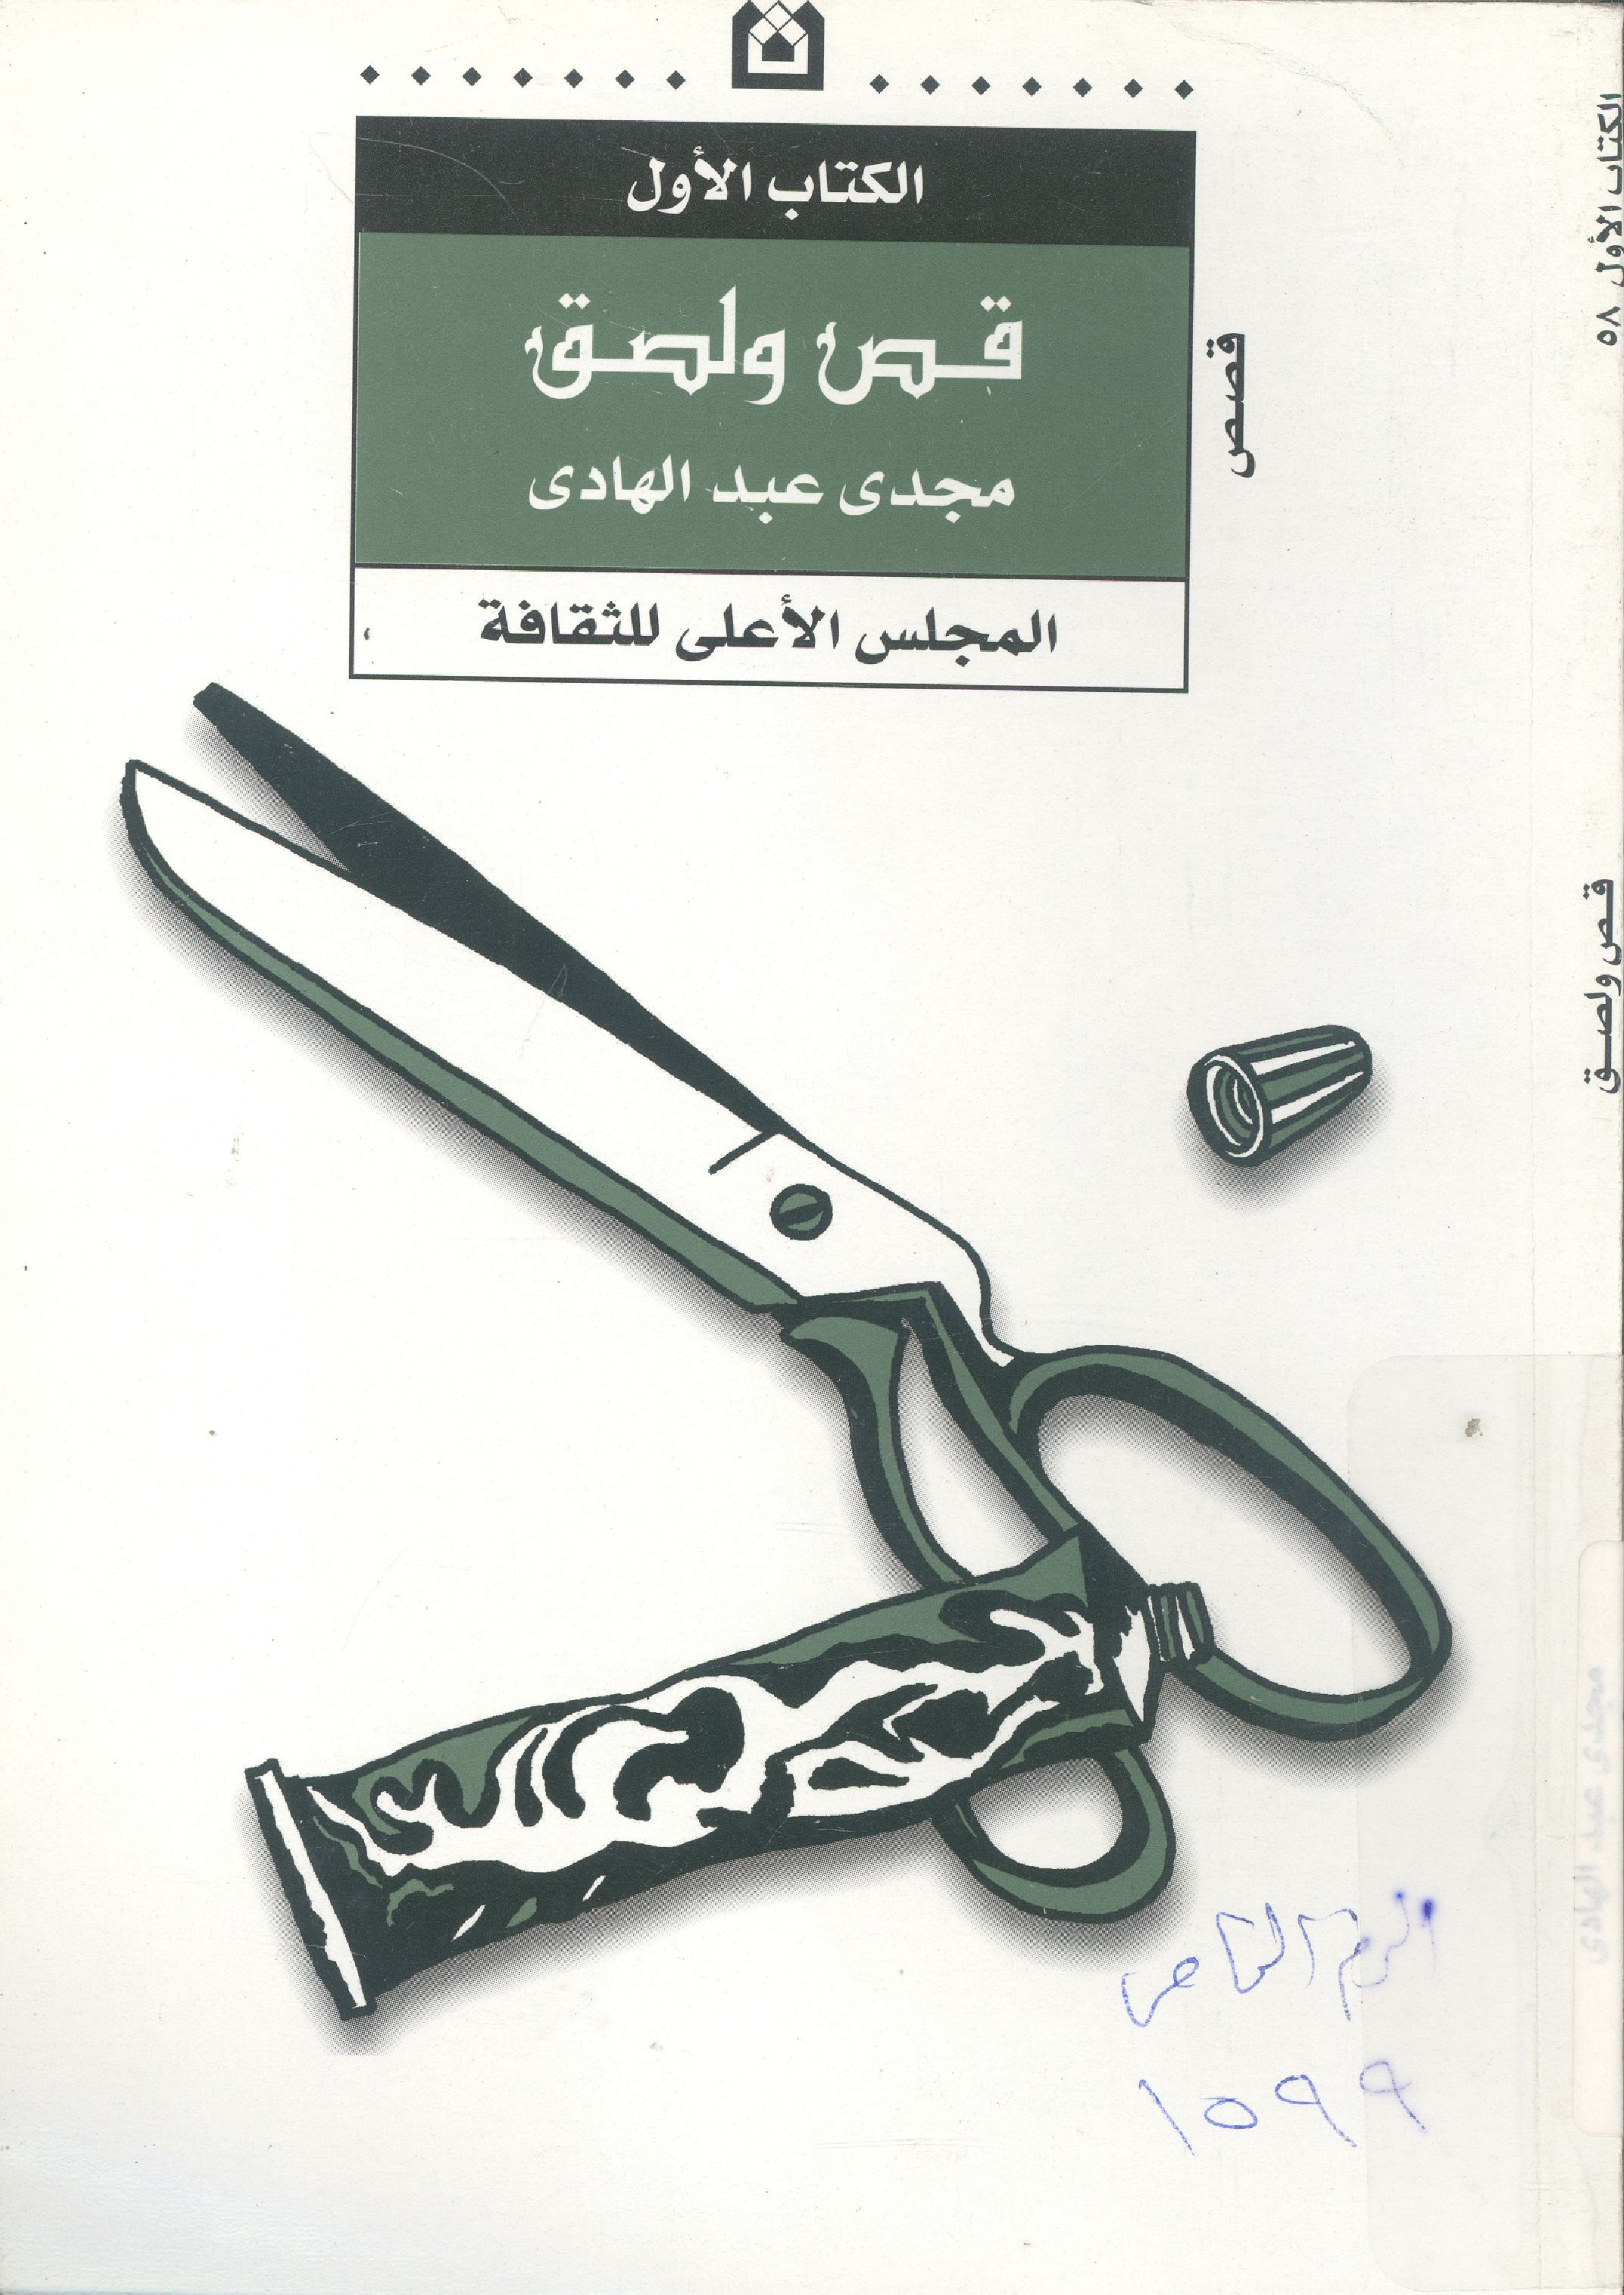 الكتاب الأول
قص ولصق
مجدى عبد الهادى
المجلس الأعلى للثقافة
قصص
الكتاب الأول ٥٨
قص ولصق
مجدى عبد الهادى
١٥٩٩